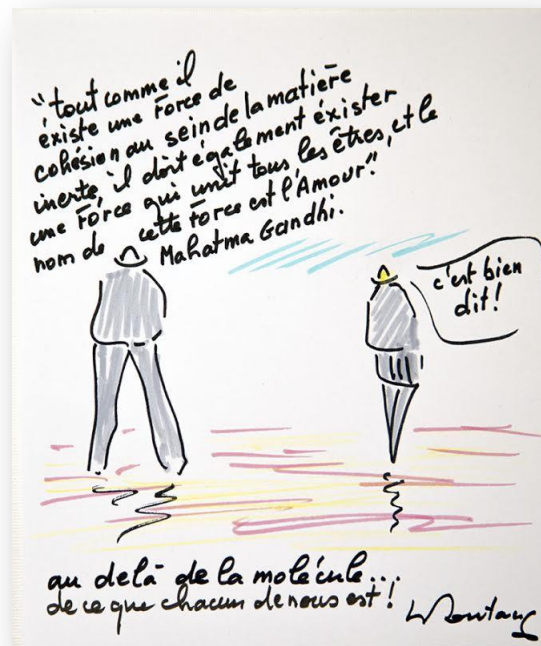 "tout comme il
existe une Force de
cohésion au sein de la matière
inerte, il doit également éxister
une Force qui unit tous les êtres, et le
nom de cette Force est l'Amour."
Mahatma Gandhi.
c'est bien
dit!
au delà de la molécule...
de ce que chacun de nous est!